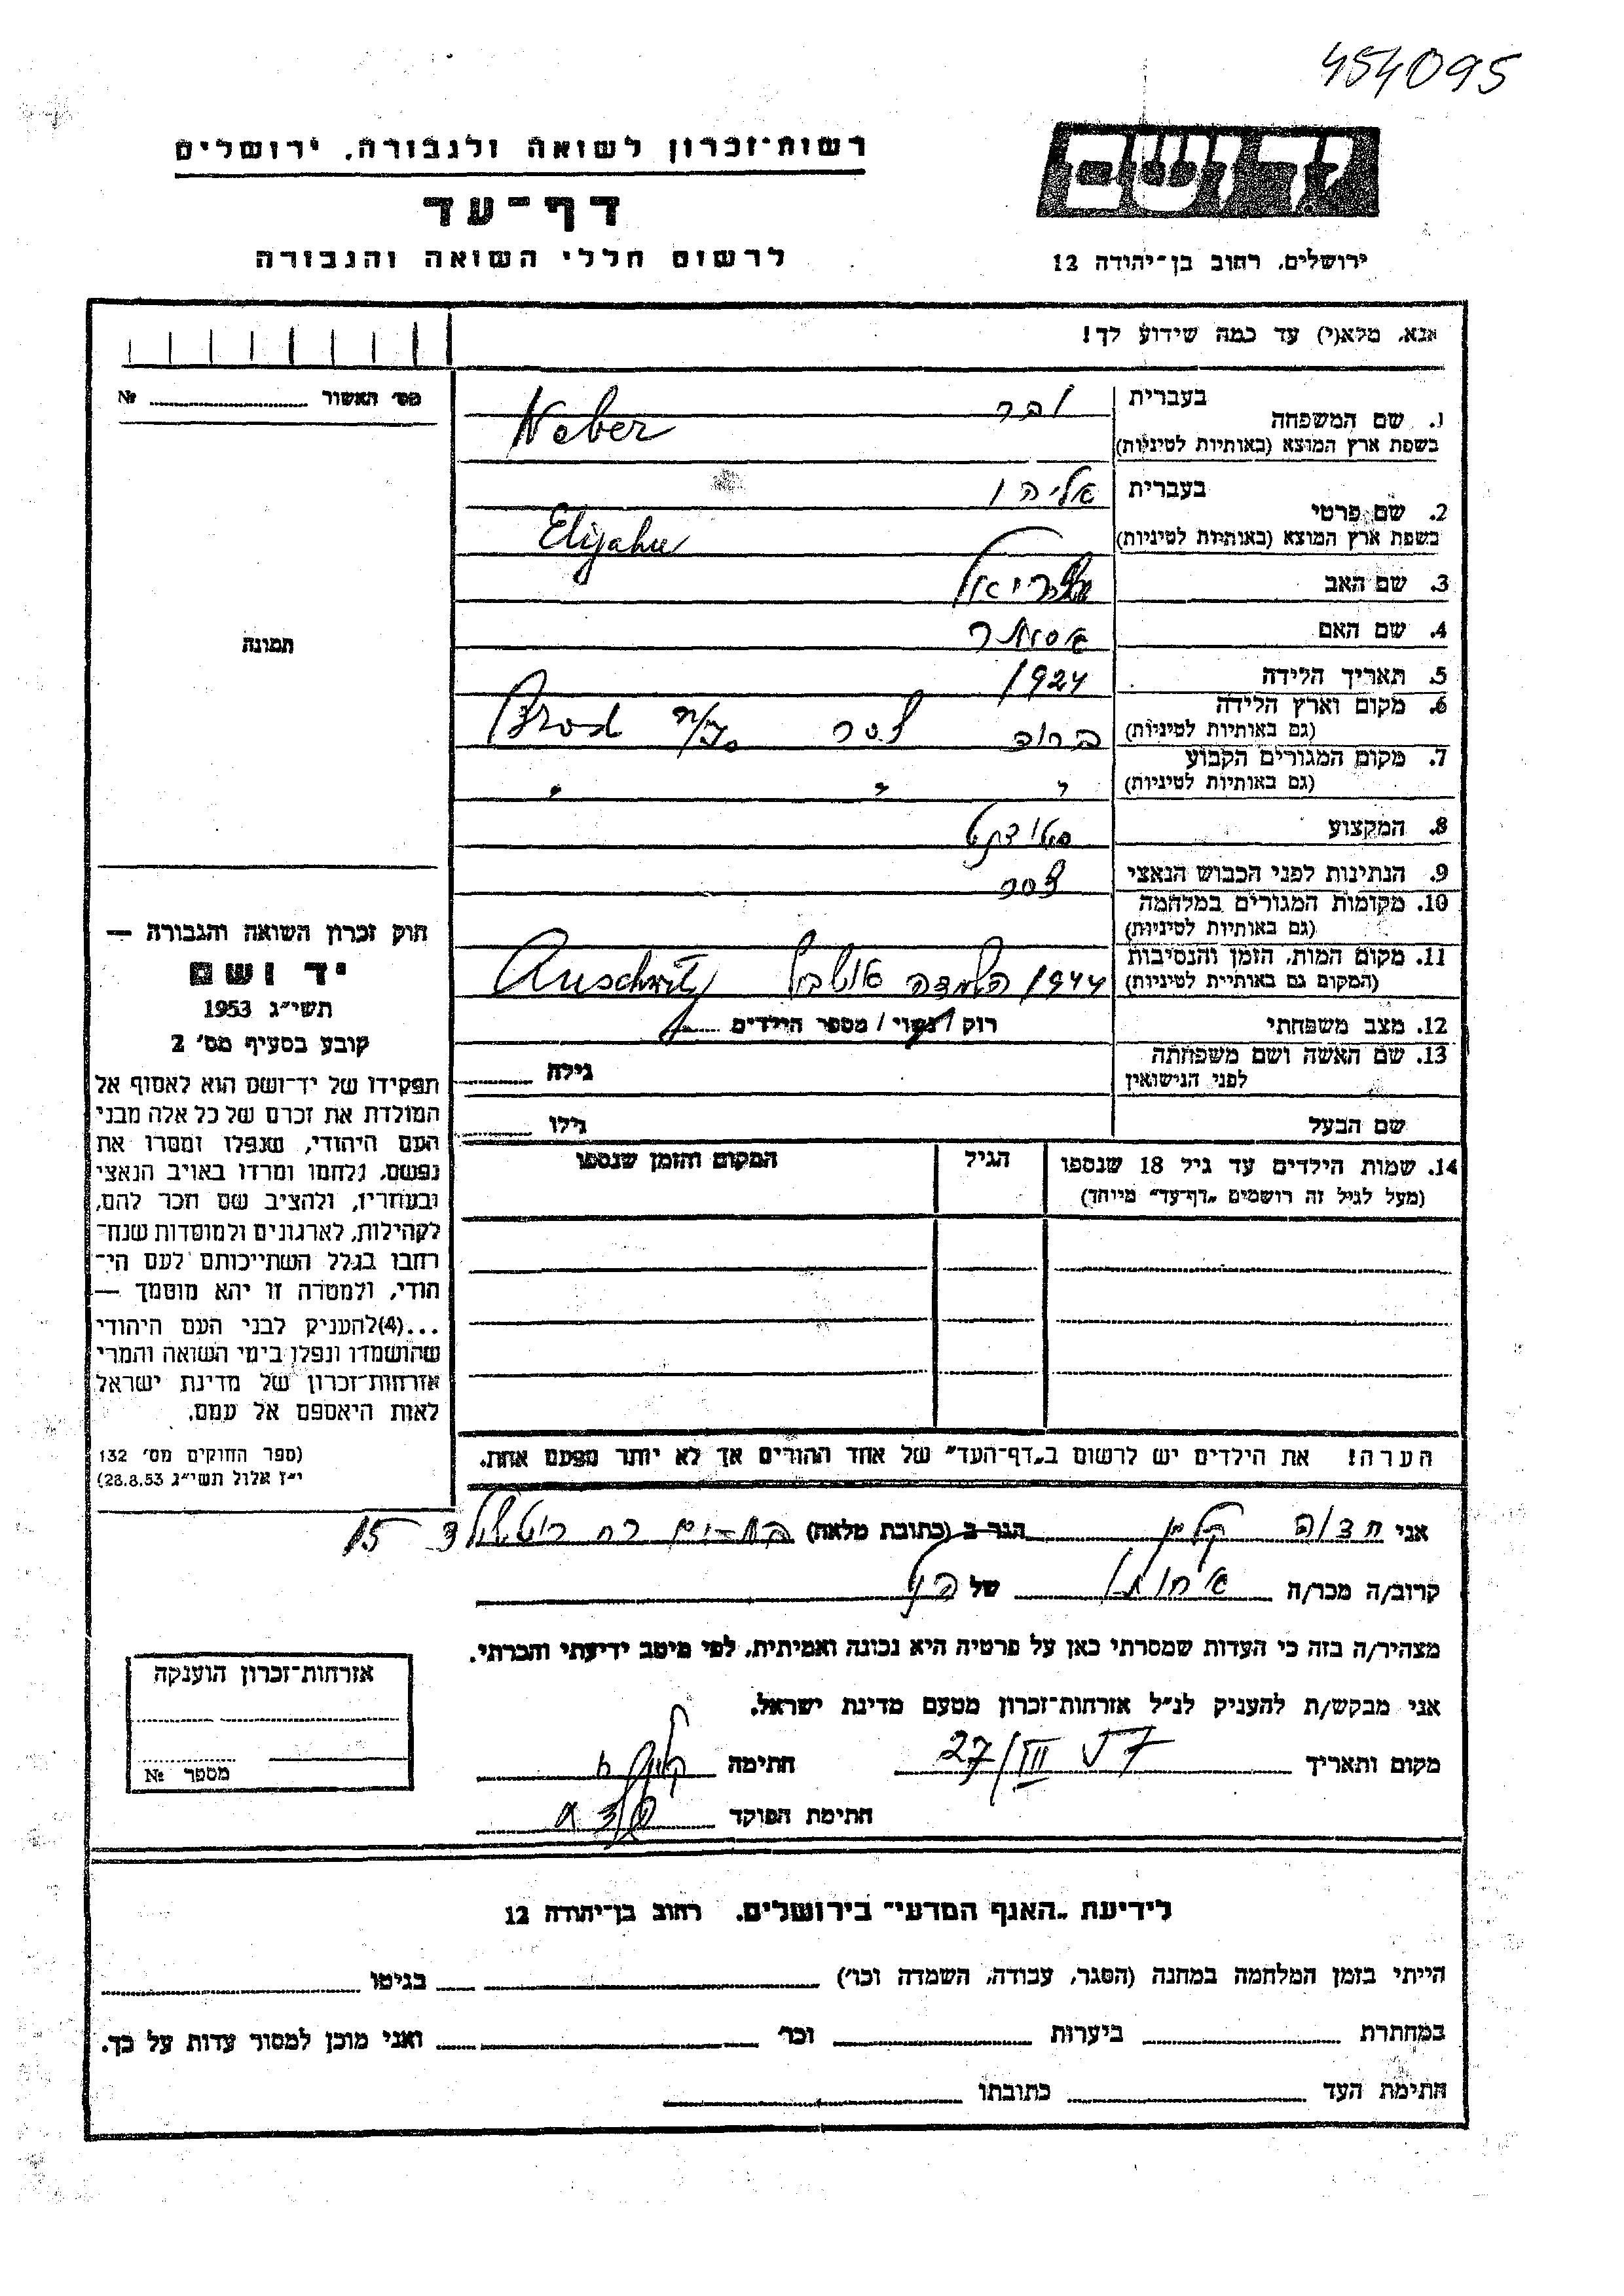 454095
רשות־זכרון לשואה ולגבורה, ירושלים
דף־עד
לרשום חללי השואה והגבורה
יד ושם
ירושלים, רחוב בן־יהודה 12
אנא, מלא(י) עד כמה שידוע לך!
מס׳ האשור № 
1. שם המשפחה בעברית ובר
בשפת ארץ המוצא (באותיות לטיניות) Weber
2. שם פרטי בעברית אליהו
בשפת ארץ המוצא (באותיות לטיניות) Elijahu
3. שם האב
4. שם האם אסתר
5. תאריך הלידה 1924
6. מקום וארץ הלידה (גם באותיות לטיניות) ברוד Brod
7. מקום המגורים הקבוע (גם באותיות לטיניות) " " "
8. המקצוע סטודנט
9. הנתינות לפני הכבוש הנאצי
10. מקומות המגורים במלחמה (גם באותיות לטיניות)
11. מקום המות, הזמן והנסיבות (המקום גם באותיית לטיניות) 1944 Auschwitz
12. מצב משפחתי רוק / נשוי / מספר הילדים
13. שם האשה ושם משפחתה לפני הנישואין גילה
שם הבעל גילו
14. שמות הילדים עד גיל 18 שנספו הגיל המקום והזמן שנספו
(מעל לגיל זה רושמים „דף־עד״ מייוחד)
הערה! את הילדים יש לרשום ב„דף־העד״ של אחד ההורים אך לא יותר מפעם אחת.
תמונה
חוק זכרון השואה והגבורה —
יד ושם
תשי״ג 1953
קובע בסעיף מס׳ 2
תפקידו של יד־ושם הוא לאסוף אל
המולדת את זכרם של כל אלה מבני
העם היהודי, שנפלו ומסרו את
נפשם, נלחמו ומרדו באויב הנאצי
ובעוזריו, ולהציב שם וזכר להם,
לקהילות, לארגונים ולמוסדות שנח־
רחבו בגלל השתייכותם לעם הי־
הודי, ולמטרה זו יהא מוסמך —
...(4)להעניק לבני העם היהודי
שהושמדו ונפלו בימי השואה והמרי
אזרחות־זכרון של מדינת ישראל
לאות היאספם אל עמם.
(ספר החוקים מס׳ 132
י״ז אלול תשי״ג 28.8.53)
אני חדוה קליין הגר ב (כתובת מלאה) 15
קרוב/ה מכר/ה אחותו של הנ״ל
מצהיר/ה בזה כי העדות שמסרתי כאן על פרטיה היא נכונה ואמיתית, לפי מיטב ידיעתי והכרתי.
אני מבקש/ת להעניק לנ״ל אזרחות־זכרון מטעם מדינת ישראל.
מקום ותאריך 27/III 57 חתימה קליין ח
חתימת הפוקד
אזרחות־זכרון הוענקה
מספר №
לידיעת „האגף המדעי״ בירושלים, רחוב בן־יהודה 12
הייתי בזמן המלחמה במחנה (הסגר, עבודה, השמדה וכו׳) בגיטו
במחתרת ביערות וכו׳ ואני מוכן למסור עדות על כך.
חתימת העד כתובתו